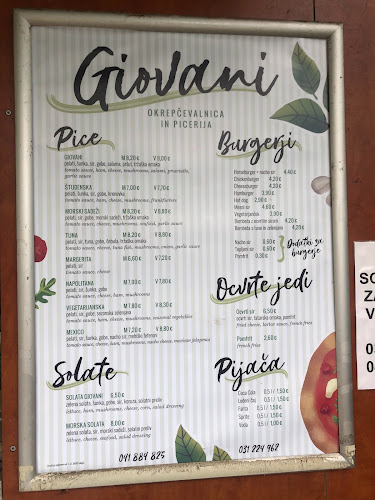 Giovani
OKREPČEVALNICA
IN PICERIJA
Pice
GIOVANI M 8,20 € V 9,00 €
pelati, sir, gobe, salama, pršut, tržaška omaka
tomato sauce, ham, cheese, mushrooms, salami, prosciutto,
garlic sauce
ŠTUDENSKA M 7,00 € V 7,70 €
pelati, šunka, sir, gobe, hrenovka
tomato sauce, cheese, ham, mushrooms, frankfurters
MORSKI SADEŽI M 8,20 €
pelati, sir, gobe, morski sadeži, tržaška omaka
tomato sauce, cheese, mushrooms, seafood, garlic sauce
TUNA M 8,20 € V 8,90 €
pelati, sir, tuna, gobe, čebula, tržaška omaka
tomato sauce, cheese, tuna fish, mushrooms, onion, garlic sauce
MARGERITA M 6,60 € V 7,20 €
pelati, sir
tomato sauce, cheese
NAPOLITANA M 7,00 € V 7,80 €
pelati, sir, šunka, gobe
tomato sauce, cheese, ham, mushrooms
VEGETARIJANSKA M 7,60 € V 8,30 €
pelati, sir, gobe, sezonska zelenjava
tomato sauce, cheese, mushrooms, seasonal vegetables
MEXICO M 7,20 € V 8,80 €
pelati, šunka, sir, gobe, nacho sir, mehiški feferoni
tomato sauce, ham, cheese, mushrooms, nacho cheese, mexican jalapenos
Solate
SOLATA GIOVANI 6,50 €
zelena solata, šunka, gobe, sir, koruza, solatni preliv
lettuce, ham, mushrooms, cheese, corn, salad dressing
MORSKA SOLATA 8,00 €
zelena solata, sir, morski sadeži, solatni preliv
lettuce, cheese, seafood, salad dressing
041 884 825
Burgerji
Hamburger + nacho sir 4,40 €
Chickenburger 4,20 €
Cheeseburger 4,20 €
Hamburger 3,90 €
Hot dog 2,90 €
Vroči sir 4,60 €
Vegetarijanska 3,90 €
Bombeta z ocvrtim sirom 4,20 €
Bombeta s tuno in zelenjavo 4,20 €
Nacho sir 0,60 €
Topljeni sir 0,50 €
Pomfrit 0,30 €
Dodatki za
burgerje
Ocvrte jedi
Ocvrti sir 6,50 €
ocvrti sir, tatarska omaka, pomfrit
fried cheese, tartar sauce, french fries
Pomfrit 2,60 €
french fries
Pijača
Coca Cola 0,5 l / 1,50 €
Ledeni čaj 0,5 l / 1,50 €
Fanta 0,5 l / 1,50 €
Sprite 0,5 l / 1,50 €
Voda 0,5 l / 1,00 €
031 224 962
SO
ZA
V
0
0